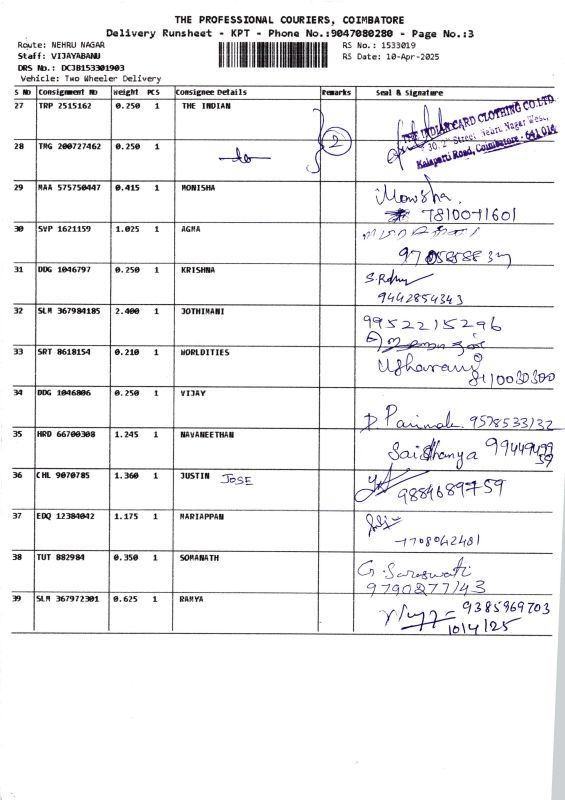 THE PROFESSIONAL COURIERS, COIMBATORE
Delivery Runsheet - KPT - Phone No.:9047080280 - Page No.:3
Route: NEHRU NAGAR RS No.: 1533019
Staff: VIJAYABANU RS Date: 10-Apr-2025
DRS No.: DC3B153301903
Vehicle: Two Wheeler Delivery
S No Consignment No Weight PCS Consignee Details Remarks Seal & Signature
27 TRP 2515162 0.250 1 THE INDIAN
THE INDIAN CARD CLOTHING CO.LTD
30, 2nd Street Nehru Nagar West,
Kalapatti Road, Coimbatore - 641 014
28 TMG 200727462 0.250 1 2
29 MAA 575750447 0.415 1 MONISHA Monisha.
30 SVP 1621159 1.025 1 AGMA
31 DDG 1046797 0.250 1 KRISHNA
9442854343
32 SLM 367984185 2.400 1 JOTHIMANI 9952215296
33 SRT 8618154 0.210 1 WORLDITIES
34 DDG 1046806 0.250 1 VIJAY
9578533132
35 HRD 66700308 1.245 1 NAVANEETHAN
36 CHL 9070785 1.360 1 JUSTIN JOSE
9884689759
37 EDQ 12384042 1.175 1 MARIAPPAN
7708042481
38 TUT 882984 0.350 1 SOMANATH G. Saraswati
9790277143
39 SLM 367972301 0.625 1 RAMYA 9385969703
10/4/25